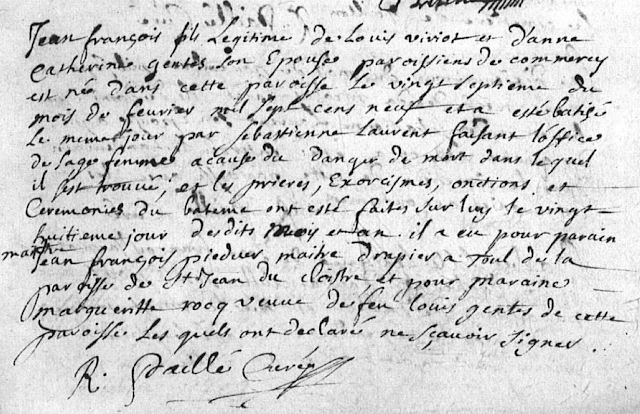 Jean françois fils Legitime de Louis viviot et d'anne
Catherine gentes son Epouse paroissiens de commercy
est née dans cette paroisse Le vingt septieme du
mois de feuvrier mil sept cens neuf et a esté batisé
Le meme jour par sebastienne Laurent faisant l'office
de sage femme acause du danger de mort dans le quel
il sest trouvé; et les prieres, Exorcismes, onctions et
Ceremonies du bateme ont esté faites sur luy le vingt
huitieme jour desdits mois et an. il a eu pour parain
Jean françois pieduer maitre drapier a Toul de la
paroisse de St Jean du cloistre et pour maraine
margueritte rocq veuve de feu Louis gentes de cette
paroisse Les quels ont declaré ne sçavoir signer.
R. Paillé Curé